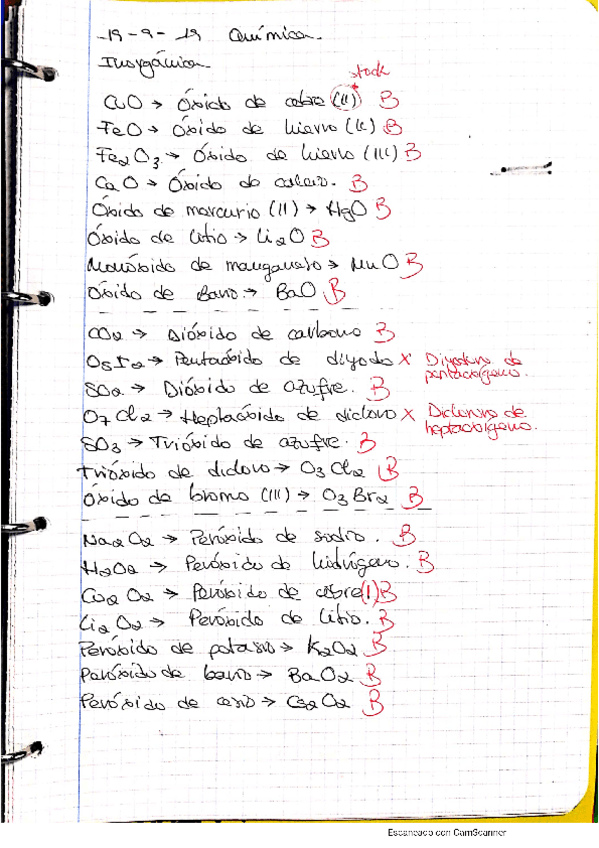 -19-9-19 Química.
Inorgánica
stock
CuO → Óxido de cobre (II) B
FeO → Óxido de hierro (II) B
Fe2O3 → Óxido de hierro (III) B
CaO → Óxido de calcio. B
Óxido de mercurio (II) → HgO B
Óxido de litio → Li2O B
Monóxido de manganeso → MnO B
Óxido de Bario → BaO B
CO2 → Dióxido de carbono B
O5I2 → Pentaóxido de diyodo X Diyoduro de pentaoxígeno.
SO2 → Dióxido de azufre. B
O7Cl2 → Heptaóxido de dicloro X Dicloruro de heptaoxígeno.
SO3 → Trióxido de azufre. B
Trióxido de dicloro → O3Cl2 B
Óxido de bromo (III) → O3Br2 B
Na2O2 → Peróxido de sodio. B
H2O2 → Peróxido de hidrógeno. B
Cu2O2 → Peróxido de cobre(I) B
Li2O2 → Peróxido de litio. B
Peróxido de potasio → K2O2 B
Peróxido de bario → BaO2 B
Peróxido de cesio → Cs2O2 B
Escaneado con CamScanner